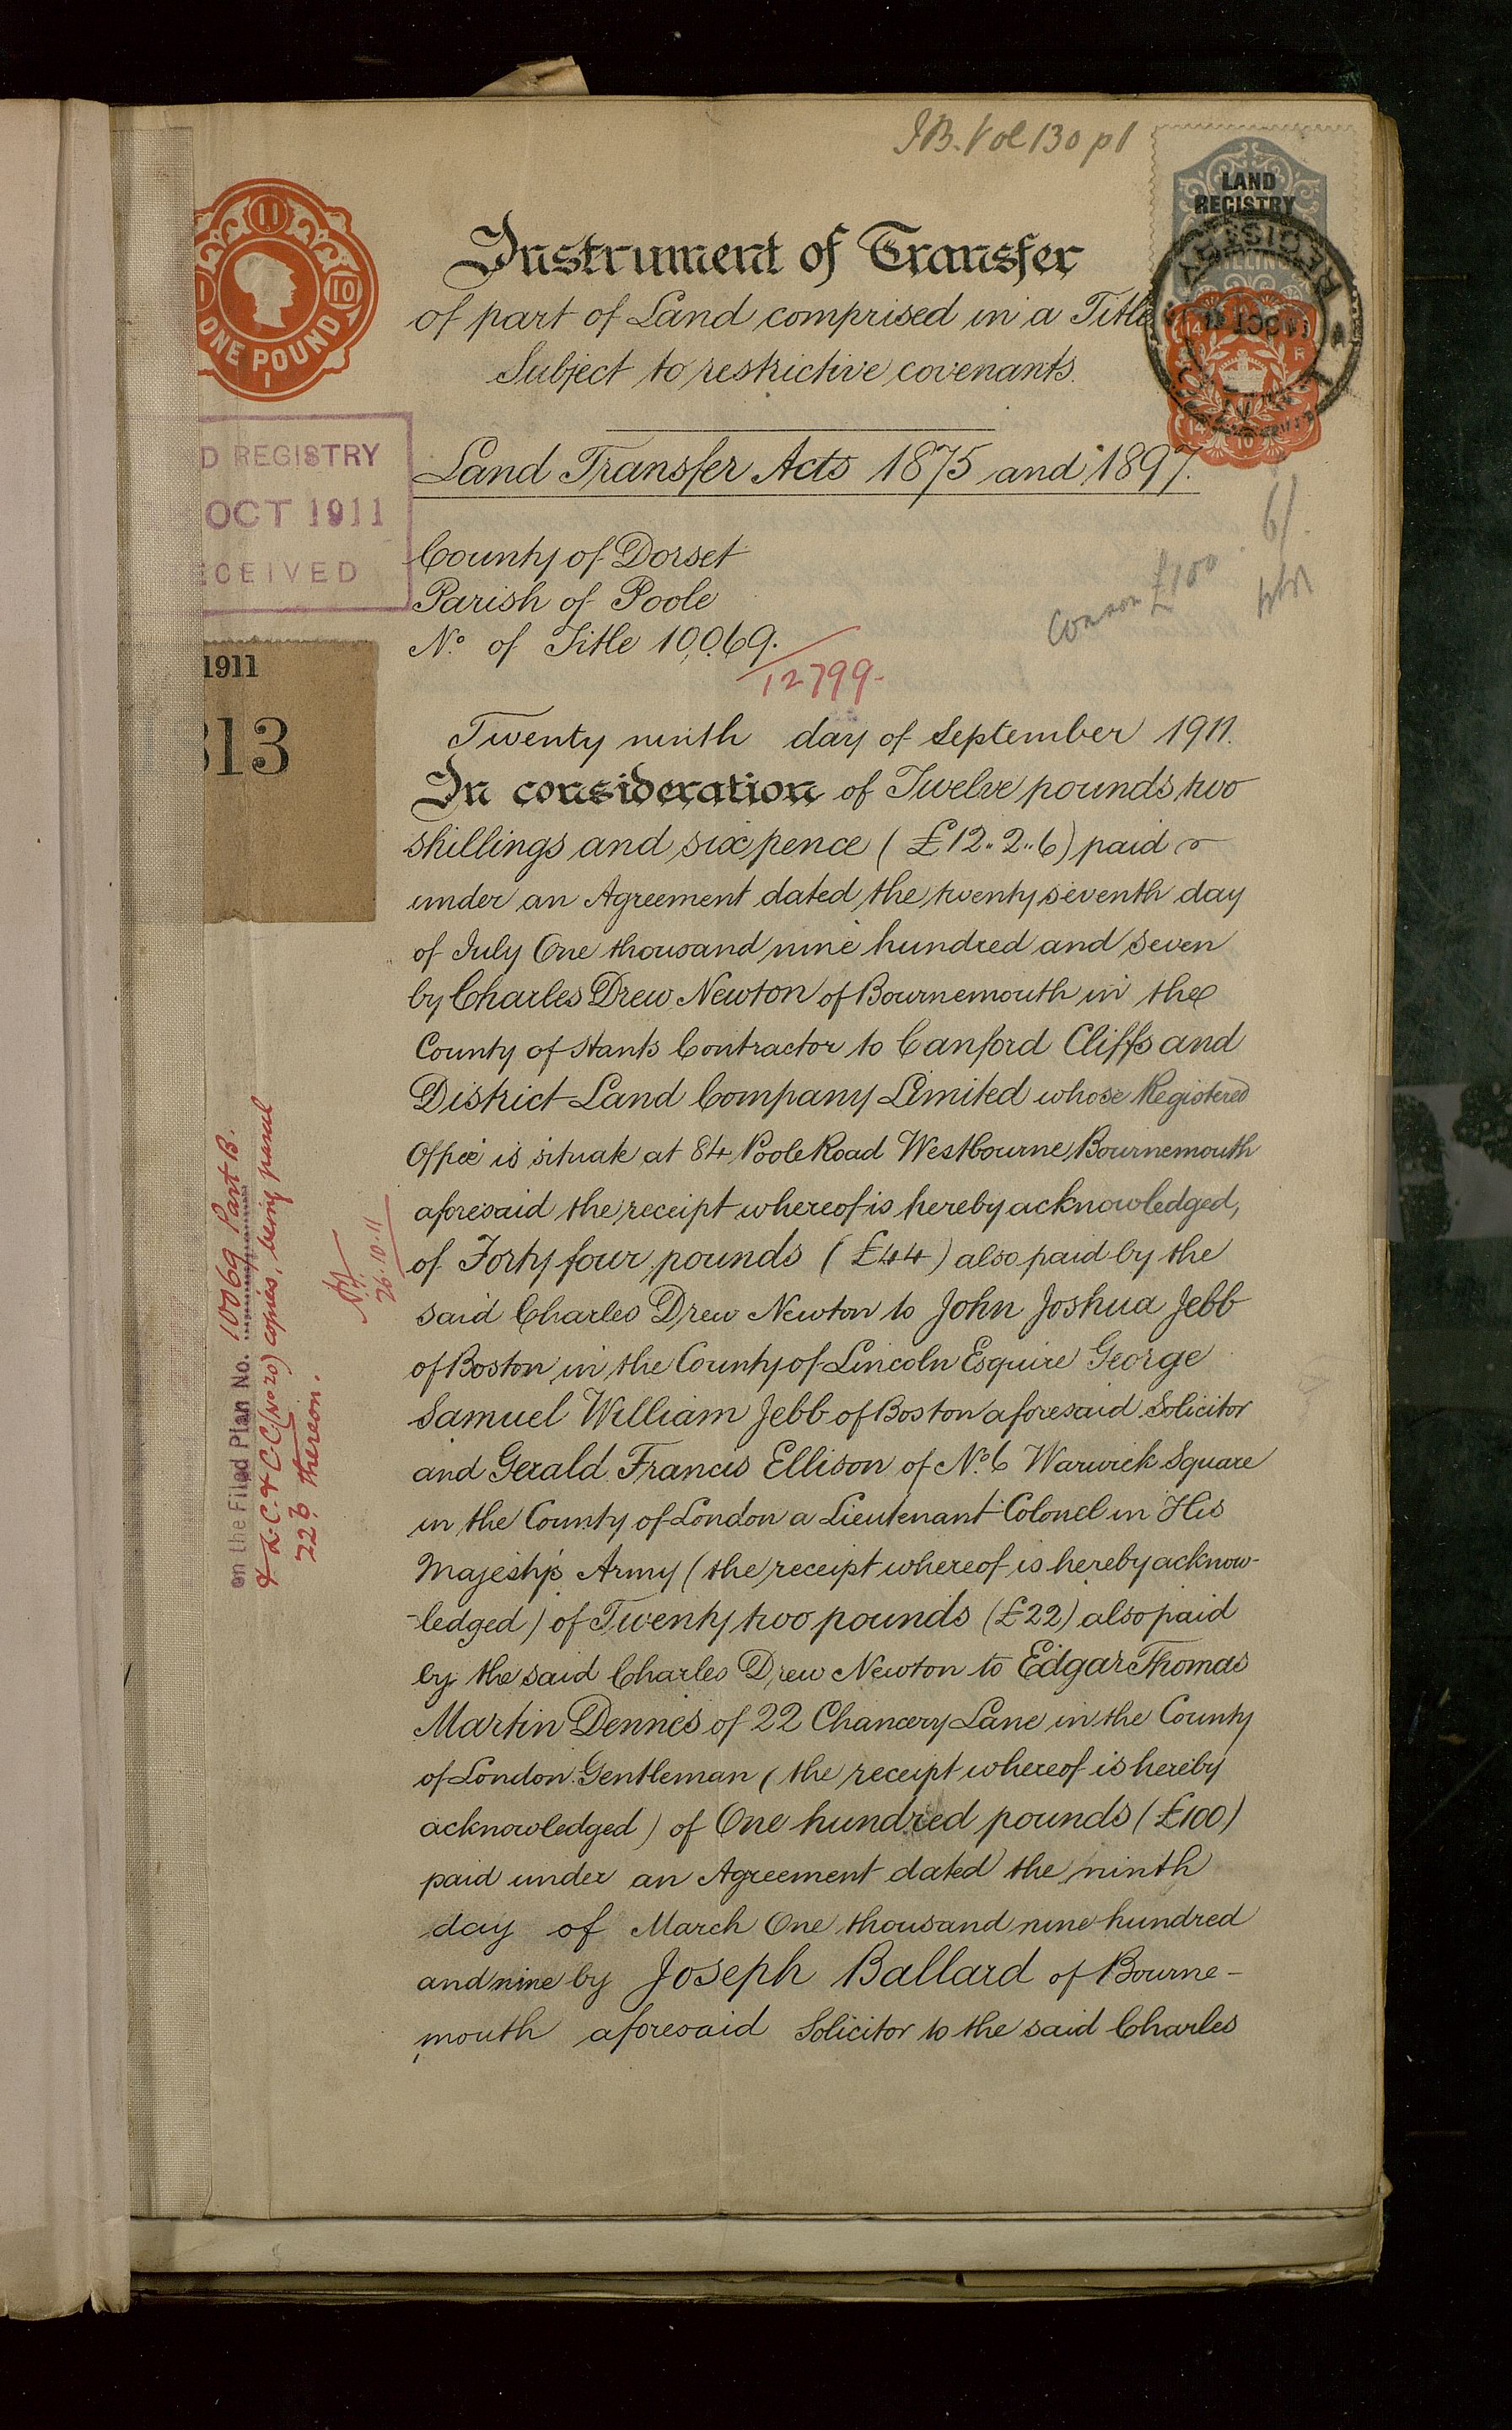 J.B. Vol 130 p1
LAND
REGISTRY
11
10
ONE POUND
1
Instrument of Transfer
of part of Land comprised in a Title
Subject to restrictive covenants.
Land Transfer Acts 1875 and 1897.
D REGISTRY
OCT 1911
ECEIVED
County of Dorset
Parish of Poole
No. of Title 10,069.
12799.
£100
6/.
1911
313
Twenty ninth day of September 1911.
In consideration of Twelve pounds two
shillings and six pence (£12..2..6) paid
under an Agreement dated the twenty seventh day
of July One thousand nine hundred and seven
by Charles Drew Newton of Bournemouth in the
County of Hants Contractor to Canford Cliffs and
District Land Company Limited whose Registered
Office is situate at 84 Poole Road Westbourne Bournemouth
aforesaid the receipt whereof is hereby acknowledged,
of Forty four pounds (£44) also paid by the
said Charles Drew Newton to John Joshua Jebb
of Boston in the County of Lincoln Esquire George
Samuel William Jebb of Boston aforesaid Solicitor
and Gerald Francis Ellison of No. 6 Warwick Square
in the County of London a Lieutenant-Colonel in His
Majesty's Army (the receipt whereof is hereby acknow-
-ledged) of Twenty two pounds (£22) also paid
by the said Charles Drew Newton to Edgar Thomas
Martin Dennes of 22 Chancery Lane in the County
of London Gentleman (the receipt whereof is hereby
acknowledged) of One hundred pounds (£100)
paid under an Agreement dated the ninth
day of March One thousand nine hundred
and nine by Joseph Ballard of Bourne-
mouth aforesaid Solicitor to the said Charles
on the Filed Plan No. 10069 Part B.
& L.C. & C.C. (No 20) copies, being parcel
226 thereon.
26.10.11